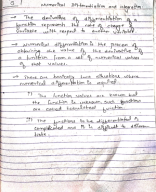 Numerical Differentiation and Integration
→ The derivative of a function represents the rate of change of a variable with respect to another variable
→ Numerical differentiation is the process of obtaining the value of the derivative of a function from a set of numerical values of that
→ There are basically two situations where numerical differentiation is required
1) The function values are known but the function is unknown such functions are called tabulated function
2) The functions to be differentiated is complicated and it is